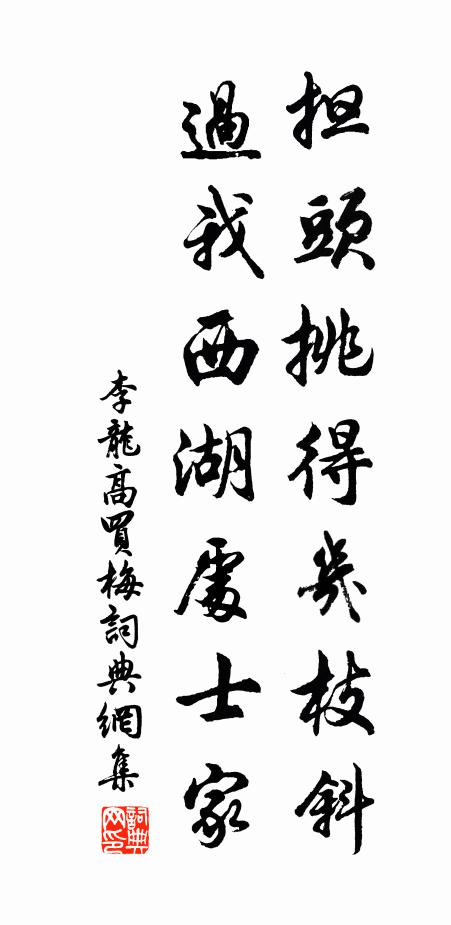 担頭挑得幾枝斜
過我西湖處士家
李龍高買梅詞典網集
詞典網印